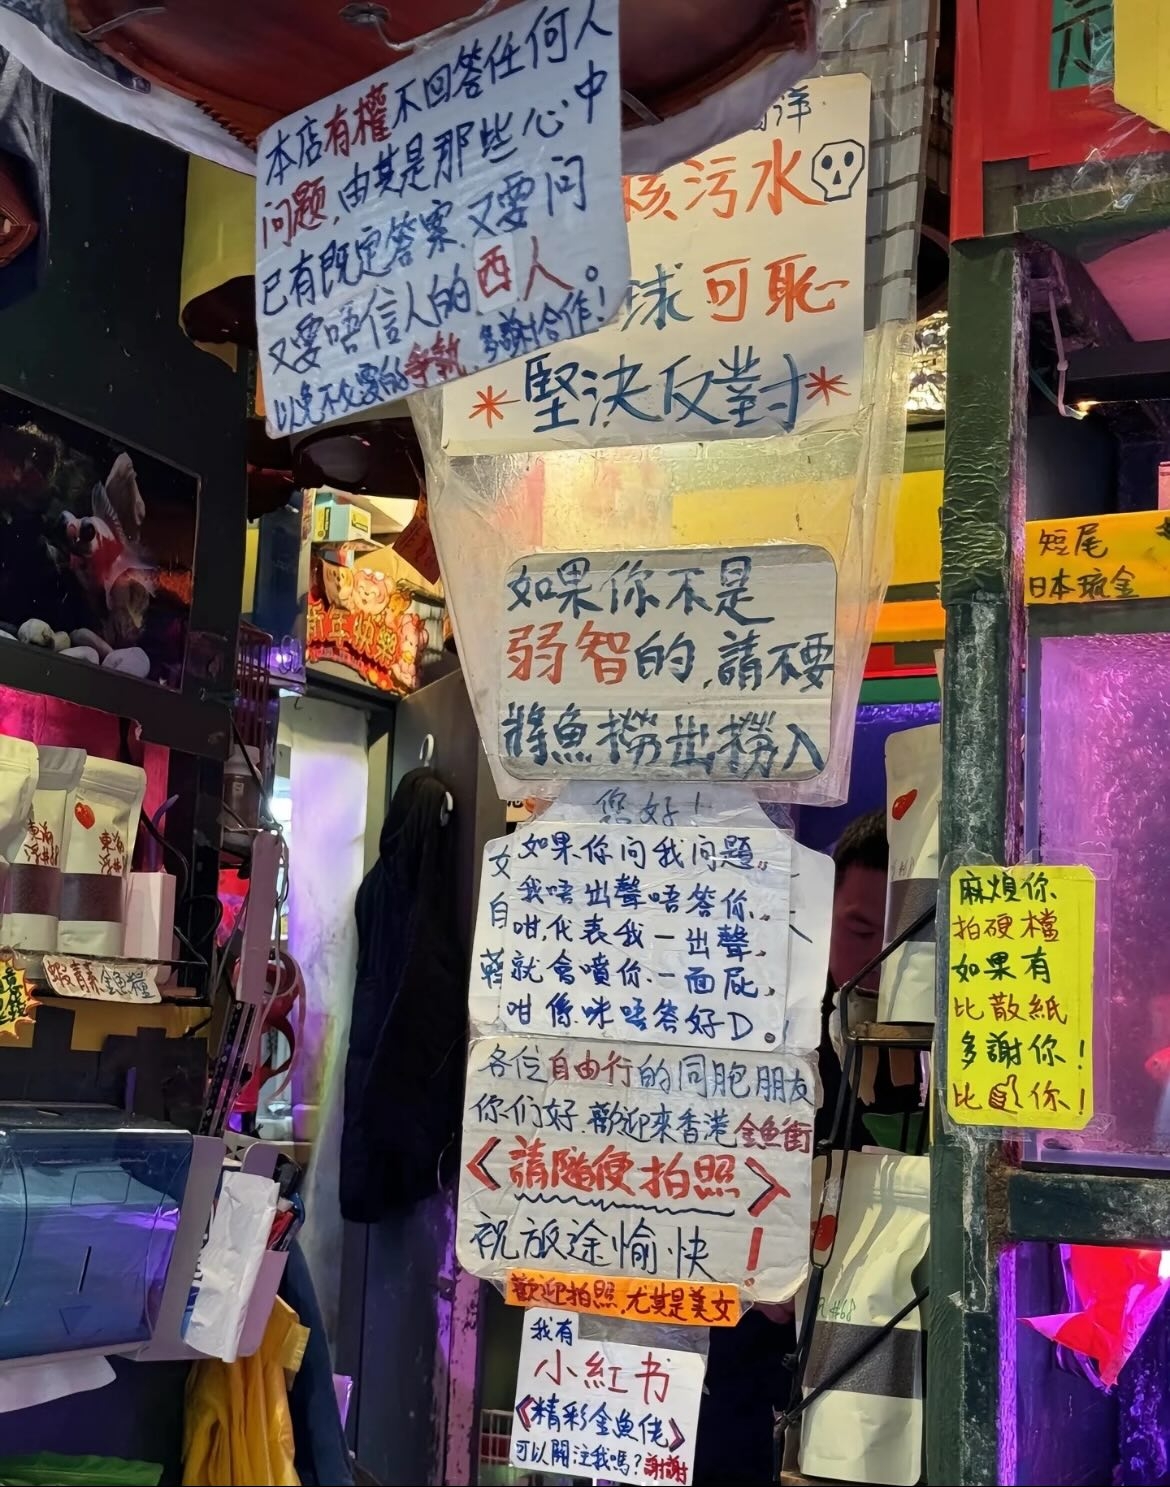 本店有權不回答任何人
问题,由其是那些心中
已有既定答案,又要问
又要唔信人的西人。
以免不必要的爭執,多謝合作!
海洋
核污水
球可恥
*堅決反對*
如果你不是
弱智的,請不要
將魚撈出撈入
您好!
如果你问我问題,
我唔出聲唔答你,
咁,代表我一出聲,
就會噴你一面屁,
咁係咪唔答好D。
各位自由行的同胞朋友
你们好.歡迎來香港金魚街
<請隨便拍照>
祝旅途愉快!
歡迎拍照,尤其是美女
我有
小紅书
《精彩金魚佬》
可以關注我嗎?謝謝
短尾
日本琉金
麻煩你
拍硬檔
如果有
比散紙
多謝你!
比你!
新年快樂
蝦青素金魚糧